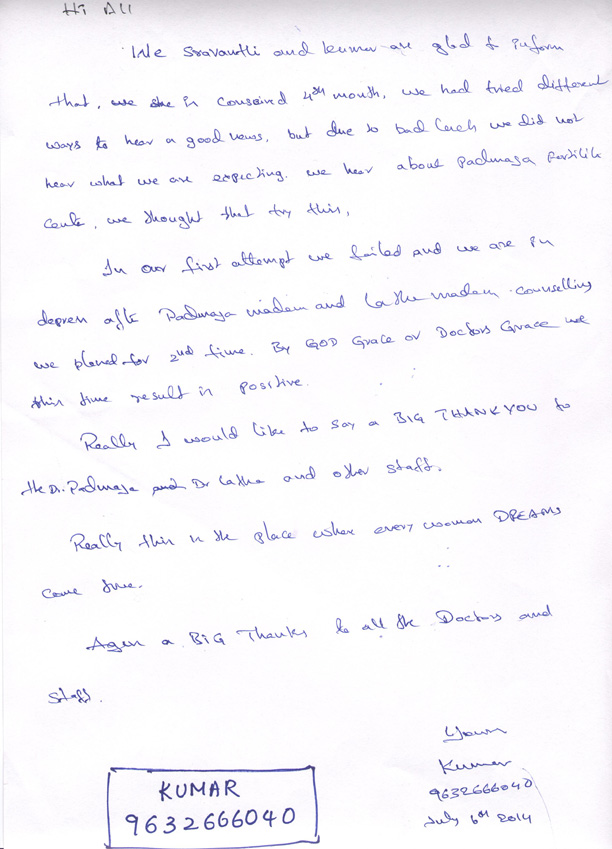 Hi All
We Sravanthi and kumar are glad to inform
that, we she is conseived 4th month, we had tried different
ways to hear a good news, but due to bad luch we did not
hear what we are expecting. we hear about Padmaja fertility
Cente, we thought that try this,
In our first attempt we failed and we are in
depress after Padmaja madam and Latha madam counselling
we planed for 2nd time. By GOD Grace or Doctors Grace we
this time result is positive.
Really I would like to say a BIG THANK YOU to
the Dr. Padmaja and Dr Latha and other staff.
Really this is the place where every woman DREAMS
come true.
Agen a BiG Thanks to all the Doctors and
staff.
Yours
Kumar
9632666040
July 6th 2014
KUMAR
9632666040